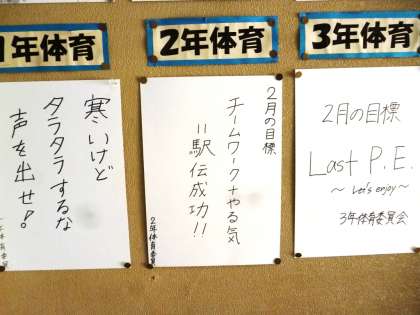 1年体育
寒いけど
タラタラするな
声を出せ!
2年体育
2月の目標
チームワーク+やる気
=駅伝成功!!
2年体育委員
3年体育
2月の目標
Last P.E.
~ Let's enjoy ~
3年体育委員会